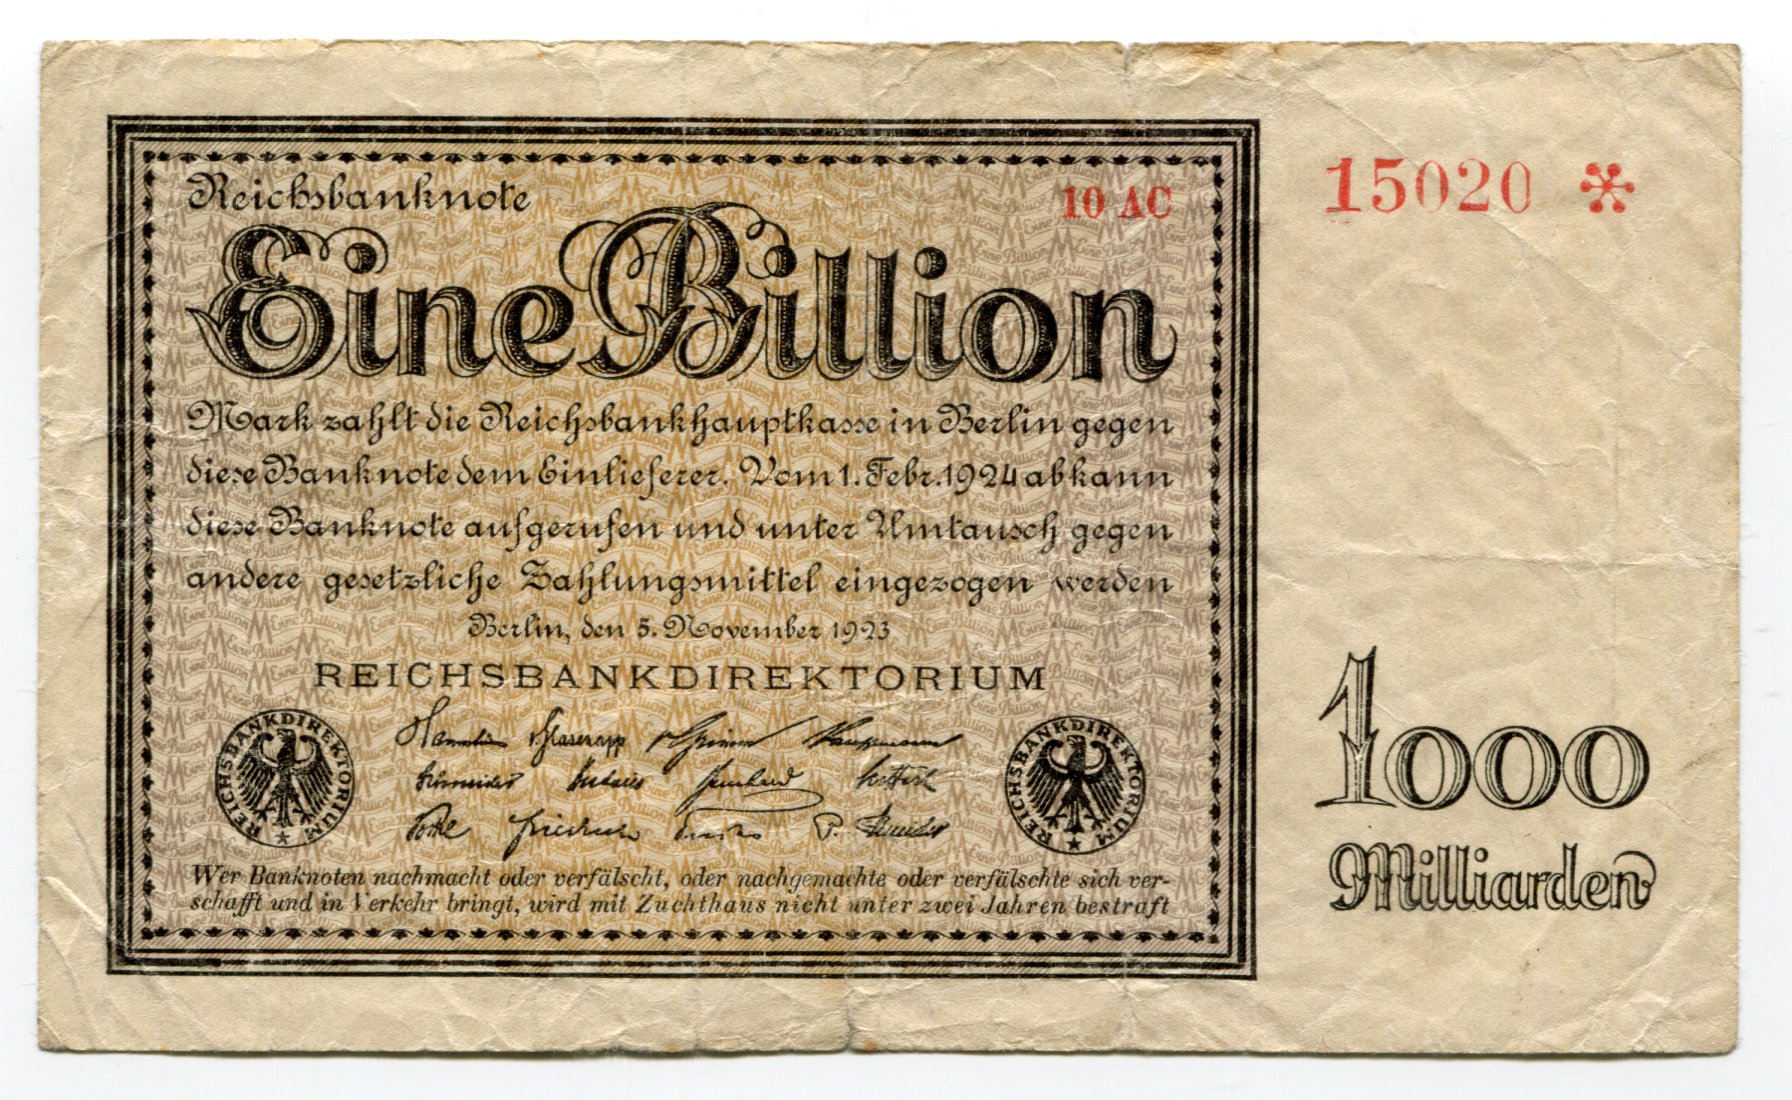 Reichsbanknote
10 AC
15020 *
Eine Billion
Mark zahlt die Reichsbankhauptkasse in Berlin gegen
diese Banknote dem Einlieferer. Vom 1. Febr. 1924 ab kann
diese Banknote aufgerufen und unter Umtausch gegen
andere gesetzliche Zahlungsmittel eingezogen werden
Berlin, den 5. November 1923
REICHSBANKDIREKTORIUM
REICHSBANKDIREKTORIUM
REICHSBANKDIREKTORIUM
v. Glasenapp v. Grimm Kauffmann
Schneider Budczies
Friedrich P. Schneider
Wer Banknoten nachmacht oder verfälscht, oder nachgemachte oder verfälschte sich ver-
schafft und in Verkehr bringt, wird mit Zuchthaus nicht unter zwei Jahren bestraft
1000
Milliarden